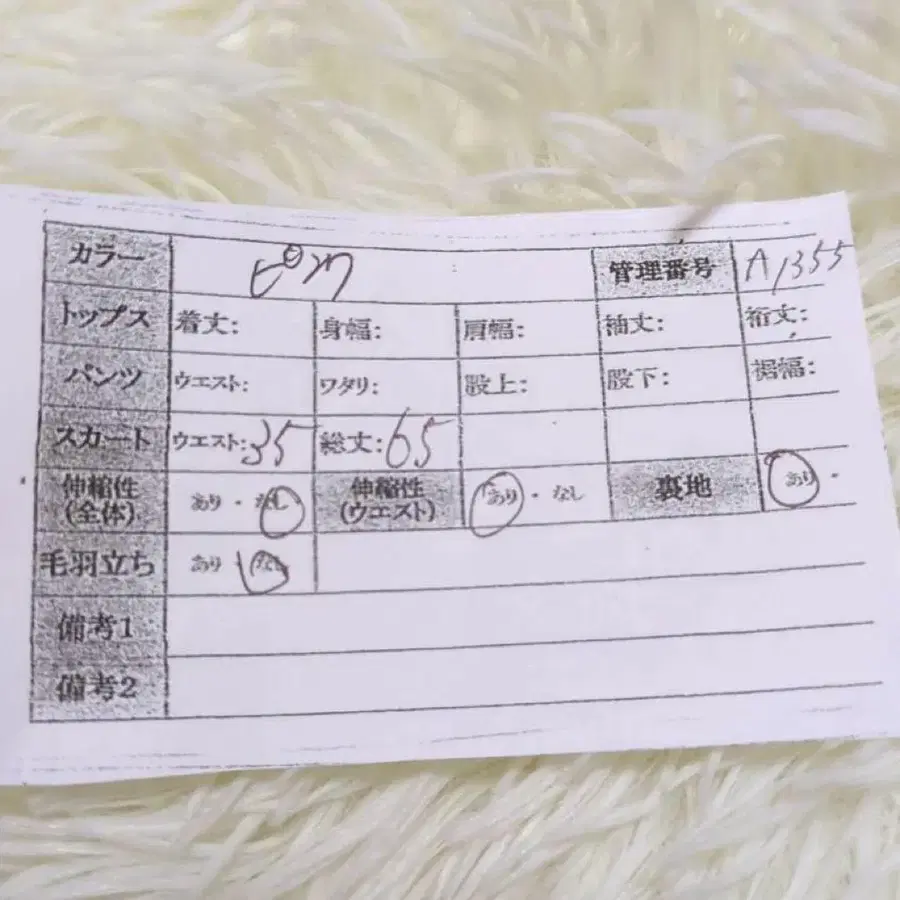 カラー ピンク 管理番号 A1355
トップス 着丈: 身幅: 肩幅: 袖丈: 裄丈:
パンツ ウエスト: ワタリ: 股上: 股下: 裾幅:
スカート ウエスト:35 総丈:65
伸縮性(全体) あり・なし 伸縮性(ウエスト) あり・なし 裏地 あり・
毛羽立ち あり なし
備考1
備考2